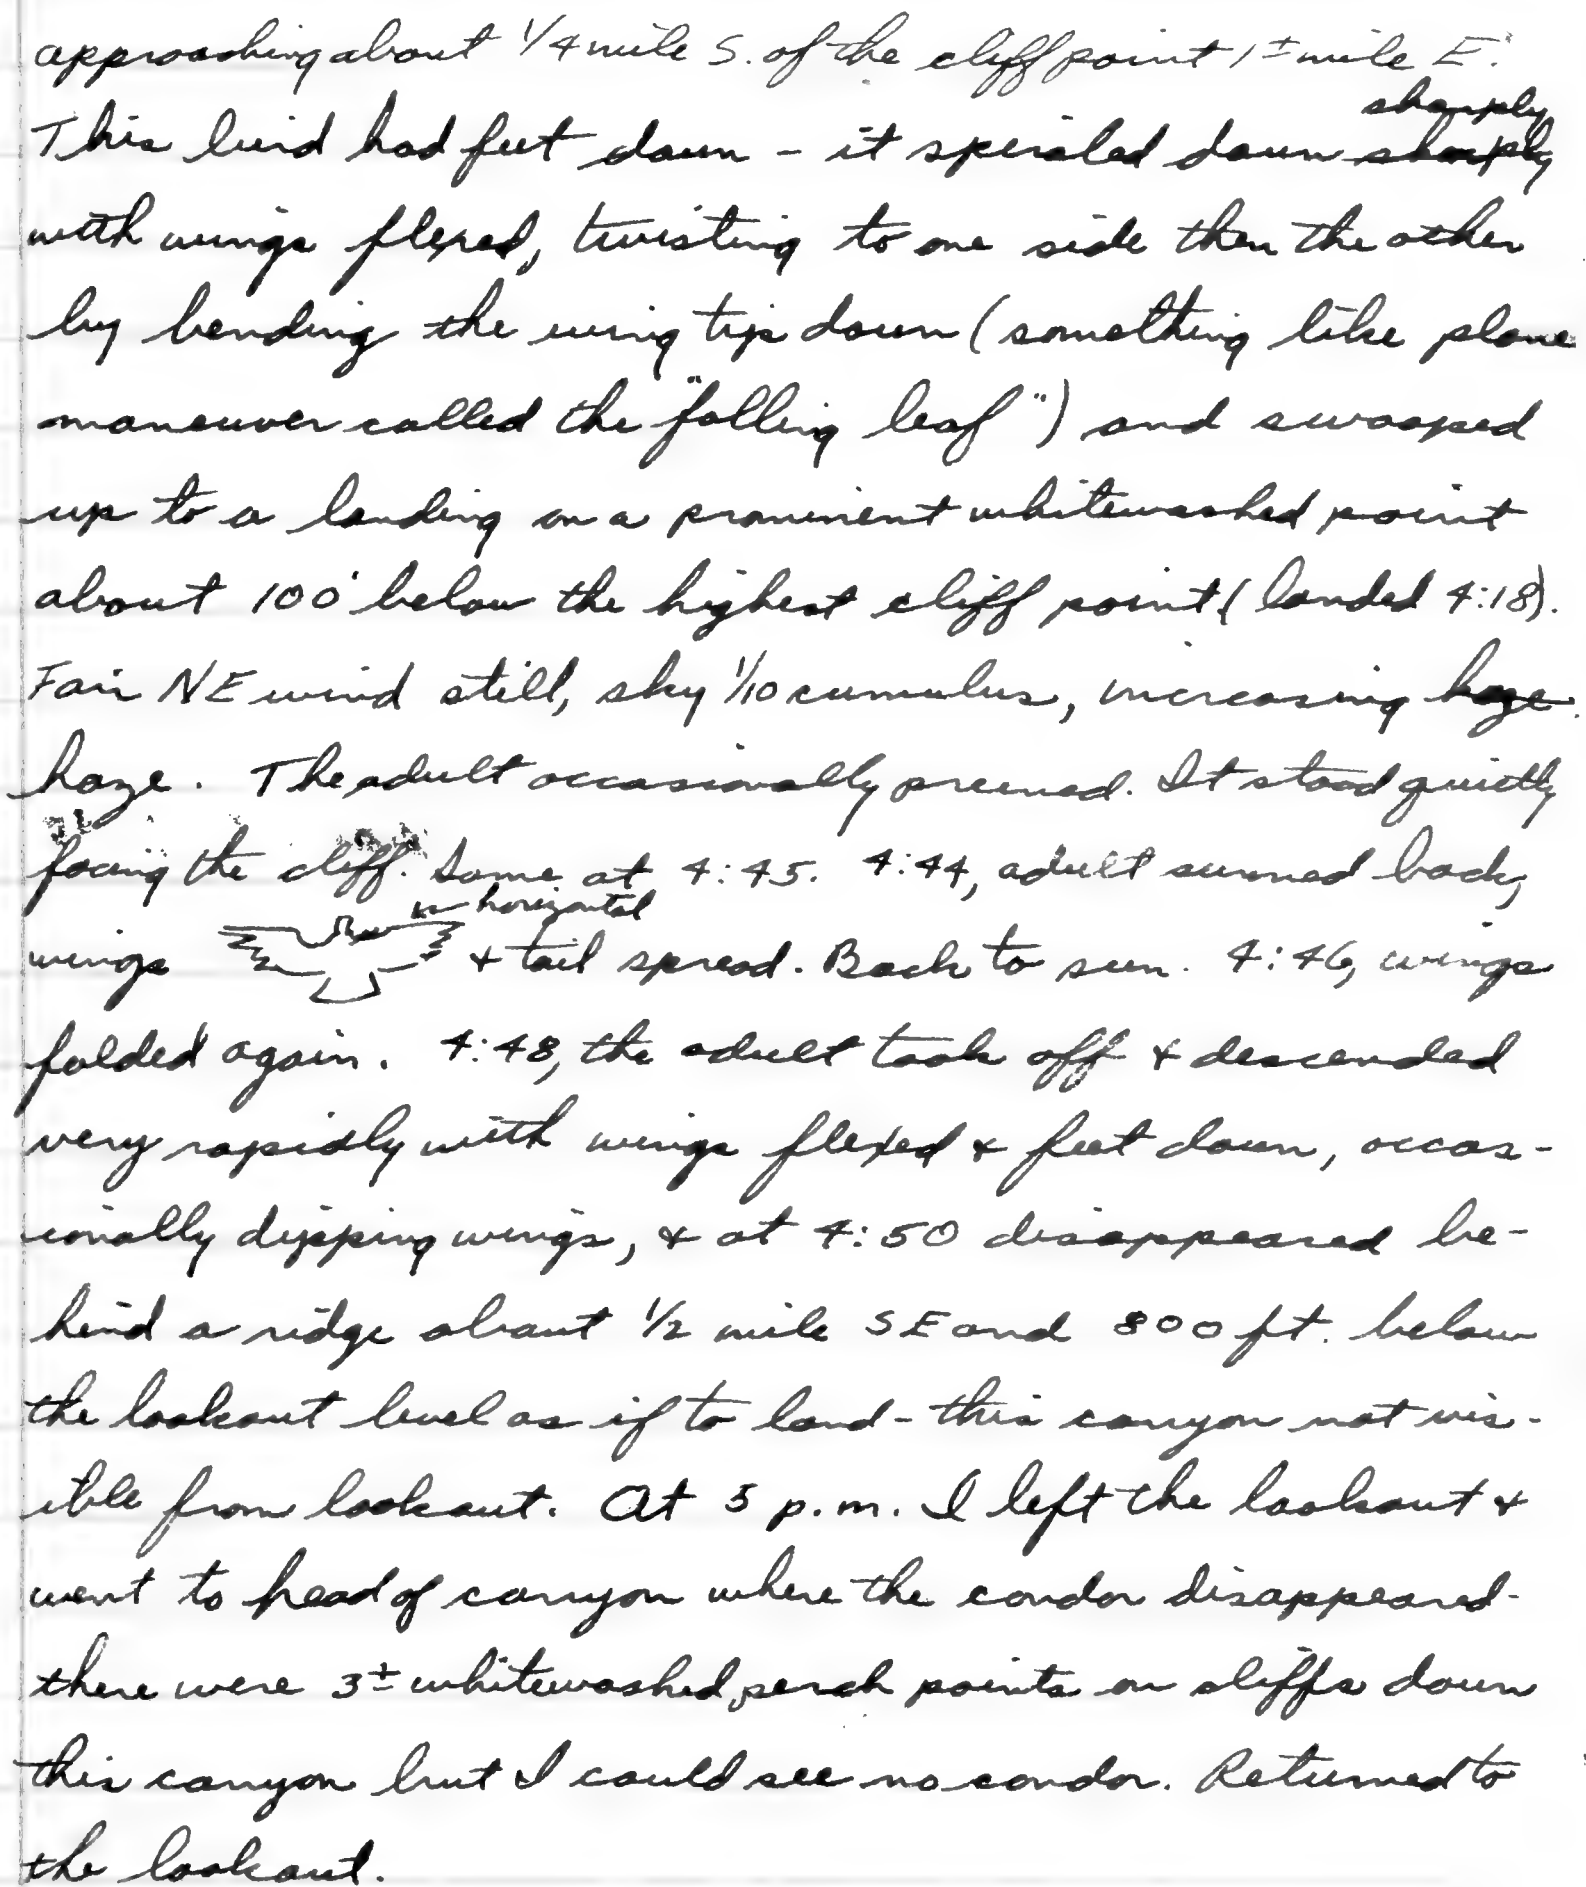 approaching about 1/4 mile S. of the cliff point 1± mile E.
sharply
This bird had feet down - it spiraled down sharply
with wings flexed, twisting to one side then the other
by bending the wing tip down (something like plane
maneuver called the "falling leaf") and swooped
up to a landing on a prominent whitewashed point
about 100' below the highest cliff point (landed 4:18).
Fair NE wind still, sky 1/10 cumulus, increasing haze
haze. The adult occasionally preened. It stood quietly
facing the cliff. Same at 4:45. 4:44, adult sunned back,
horizontal
wings & tail spread. Back to sun. 4:46, wings
folded again. 4:48, the adult took off & descended
very rapidly with wings flexed & feet down, occas-
ionally dipping wings, & at 4:50 disappeared be-
hind a ridge about 1/2 mile SE and 800 ft. below
the lookout level as if to land - this canyon not vis-
ible from lookout. At 5 p.m. I left the lookout &
went to head of canyon where the condor disappeared-
there were 3± whitewashed perch points on cliffs down
this canyon but I could see no condor. Returned to
the lookout.